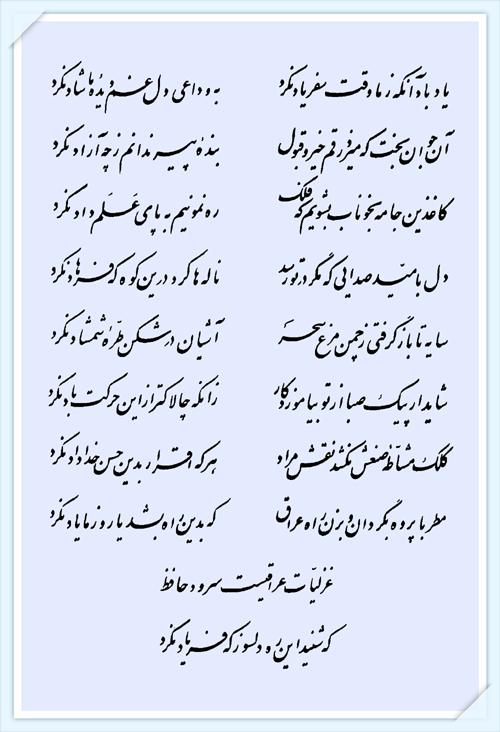 یاد باد آنکه ز ما وقت سفر یاد نکرد به وداعی دل غم دیدهٔ ما شاد نکرد
آن جوان بخت که می‌زد رقم خیر و قبول بندهٔ پیر ندانم ز چه آزاد نکرد
کاغذین جامه بخوناب بشویم که فلک ره نمونیم به پای علم داد نکرد
دل بامید صدایی که مگر در تو رسد ناله‌ها کرد درین کوه که فرهاد نکرد
سایه تا بازگرفتی ز چمن مرغ سحر آشیان در شکن طرهٔ شمشاد نکرد
شاید ار پیک صبا از تو بیاموزد کار زانکه چالاکتر از این حرکت باد نکرد
کلک مشاطهٔ صنعش نکشد نقش مراد هر که اقرار بدین حسن خداداد نکرد
مطربا پرده بگردان و بزن راه عراق که بدین راه بشد یار و ز ما یاد نکرد
غزلیات عراقیست سرود حافظ
که شنید این ره دلسوز که فریاد نکرد